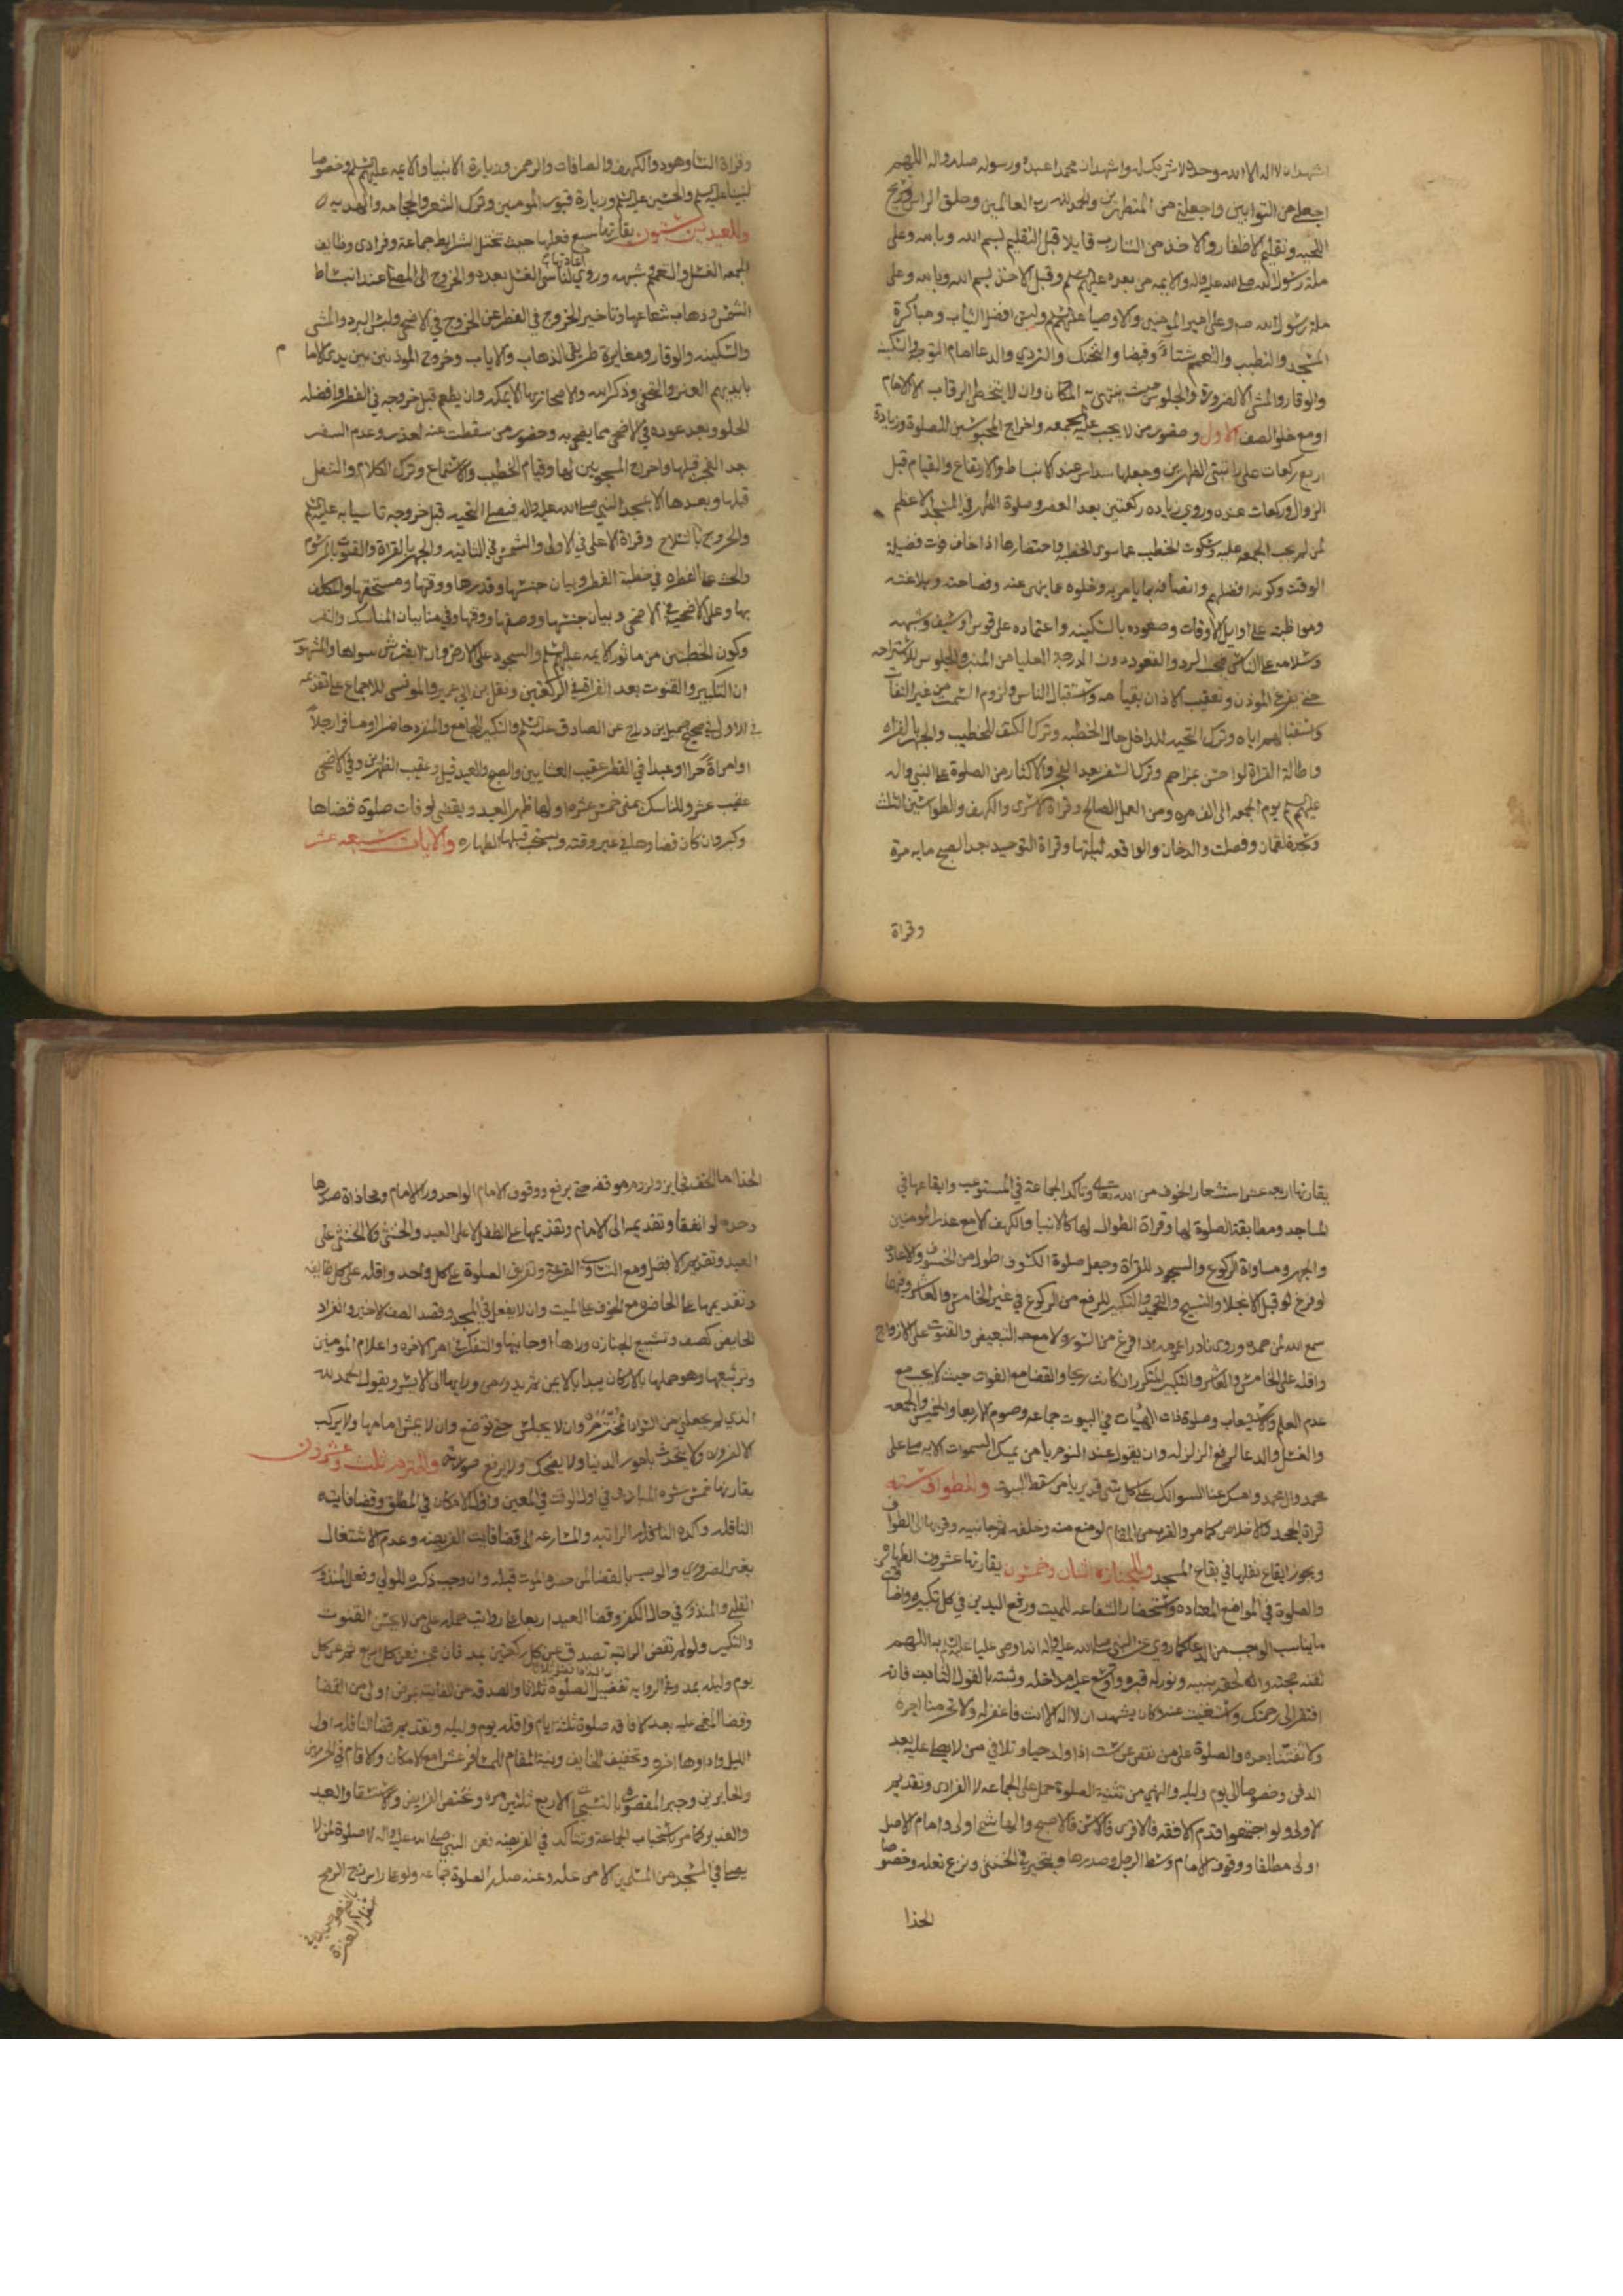 اشهد ان لا اله الا الله وحده لا شريك له واشهد ان محمدا عبده ورسوله صلى الله عليه واله اللهم
اجعلني من التوابين واجعلني من المتطهرين والحمد لله رب العالمين وحلق الراس وتسريح
اللحيه وتقليم الاظفار والاخذ من الشارب قايلا قبل التقليم بسم الله وبالله وعلى
ملة رسول الله صلى الله عليه واله والايمه من بعده عليهم السلم وقبل الاخذ بسم الله وبالله وعلى
ملة رسول الله صه وعلى امير المومنين والاوصيا عليهم السلم ولبس افضل الثياب ومباكرة
المسجد والتطيب والتعمم شتاء وقيضا والتحنك والتردي والدعا امام التوجه والسكينه
والوقار والمشي الا لضرورة والجلوس حيث ينتهي به المكان وان لا يتخطى الرقاب الا الامام
او مع خلو الصف الاول وحضور من لا يجب عليه الجمعه واخراج المحبوسين للصلوة وزيادة
اربع ركعات على راتبتي الظهرين وجعلها سداس عند الانبساط والارتفاع والقيام قبل
الزوال وركعات عنده وروي زياده ركعتين بعد العصر وصلوة الظهر في المسجد الاعظم
لمن لم يجب الجمعه عليه وسكوت الخطيب عما سوى الخطبه واختصارها اذا خاف فوت فضيلة
الوقت وكونه افضلهم واتصافه بما يامر به وخلوه عما ينهى عنه وفصاحته وبلاغته
ومواظبته على اوايل الاوقات وصعوده بالسكينه واعتماده على قوس او سيف وشبهه
وسلامه على الناس فيجب الرد والقعود دون الدرجة العليا من المنبر والجلوس للاستراحه
حتى يفرغ الموذن وتعقيب الاذان بقيامه واستقبال الناس ولزوم السمت من غير التفات
واستقبالهم اياه وترك التحيه للداخل حال الخطبه وترك الكتف للخطيب والجهر بالقراه
واطالة القراة لو احس بمزاحم وترك السفر بعد الفجر والاكثار من الصلوة على النبي واله
عليهم السلم يوم الجمعه الى الف مره ومن العمل الصالح وقراة الاسرى والكهف والطواسين الثلث
وسجدة لقمان وفصلت والدخان والواقعه ليلتها وقراة التوحيد بعد الصبح مايه مرة
وقراة
وقراة النسا وهود والكهف والصافات والرحمن وزيارة الانبيا والايمه عليهم السلم وخصوصا
نبينا عليه السلم والحسين عليه السلم وزيارة قبور المومنين وترك الشعر والحجامه والهذيه
وللعيدين ستون يقارنها سبع فعلها حيث تختل الشرايط جماعة وفرادى وظايف
الجمعه الغسل والتعمم وشبهه وروي اعادتها لناسي الغسل بعده والخروج الى المصلى عند انبساط
الشمس وذهاب شعاعها وتاخير الخروج في الفطر عن الخروج في الاضحى ولبس البرد والمشي
والسكينه والوقار ومغايرة طريقي الذهاب والاياب وخروج الموذنين بين يدي الاما م
بايديهم العنز والتحفي وذكر الله والاصحار بها الا بمكه وان يطعم قبل خروجه في الفطر وافضله
الحلو وبعد عوده في الاضحى مما يضحي به وحضور من سقطت عنه لعذر وعدم السفر
بعد الفجر قبلها واخراج المسجونين لها وقيام الخطيب والاستماع وترك الكلام والتنفل
قبلها وبعدها الا بمسجد النبي صلى الله عليه واله فيصلي التحيه قبل خروجه تاسيا به عليه السلم
والخروج بالسلاح وقراة الاعلى في الاولى والشمس في الثانيه والجهر بالقراة والقنوت بالمرسوم
والحث على الفطره في خطبة الفطر وبيان جنسها وقدرها ووقتها ومستحقها والمكلف
بها وعلى الاضحية في الاضحى وبيان جنسها ووصفها ووقتها وفي منى بيان المناسك والنفر
وكون الخطبتين من ماثور الايمه عليهم السلم والسجود على الارض وان لا يفترش سواها والمشهور
ان التكبير والقنوت بعد القراة في الركعتين ونقل ابن ابي عمير والمونسي الاجماع على تقديمه
في الاولى في صحيح جميل بن دراج عن الصادق عليه السلم والتكبير للجامع والمنفرد حاضرا ومسافرا رجلا
او امراة حرا او عبدا في الفطر عقيب العشايين والصبح والعيد قيل وعقيب الظهرين وفي الاضحى
عقيب عشر وللناسك بمنى خمس عشره اولها ظهر العيد ويقضي لو فات صلوة قضاها
وكبر وان كان قضاوها في غير وقته ويستحب قبلها الطهاره والايات سبعه عشر
يقارنها اربعه عشر استشعار الخوف من الله تعالى وتاكد الجماعة في المستوعب وايقاعها في
المساجد ومطابقة الصلوة لها وقراة الطوال لها كالانبيا والكهف الا مع عذر المومنين
والجهر ومساواة الركوع والسجود للقراة وجعل صلوة الكسوف اطول من الخسوف والاعادة
لو فرغ قبل الانجلا والتسبيح والتحميد والتكبير للرفع من الركوع في غير الخامس والعاشر وفيهما
سمع الله لمن حمده وروي نادرا عمومه اذا فرغ من السورة لا مع التبعيض والقنوت على الازواج
واقله على الخامس والعاشر والتكبير المتكرر ان كانت ريحا والقضا مع الفوات حيث لا يجب مع
عدم العلم والاستيعاب وصلوة ذات الهيات في البيوت جماعه وصوم الاربعا والخميس والجمعه
والغسل والدعا لرفع الزلزله وان يقول عند النوم يا من يمسك السموات الايه صل على
محمد وال محمد وامسك عنا السو انك على كل شي قدير يا من سقط البيت وللطواف سته
قراة الجحد والاخلاص كما مر والقرب من المقام لو منع منه وخلفه ثم جانبيه وقربها الى الطواف
ويجوز ايقاع نفلها في بقاع المسجد وللجنازه اثنان وخمسون يقارنها عشرون الطهاره
والصلوة في المواضع المعتاده واستحضار الشفاعه للميت ورفع اليدين في كل تكبيره واضافة
ما يناسب الواجب من الدعا كما روي عن النبي صلى الله عليه واله انه اوصى عليا عليه السلم به اللهم
لقنه حجته والحقه بنبيه ونور له قبره ووسع عليه مدخله وثبته بالقول الثابت فانه
افتقر الى رحمتك واستغنيت عنه وكان يشهد ان لا اله الا انت فاغفر له ولا تحرمنا اجره
ولا تفتنا بعده والصلوة على من نقص عن ست اذا ولد حيا وتلافي من لا يصلى عليه بعد
الدفن وخصوصا الى يوم وليله والنهي من تثنية الصلوة حمل على الجماعه لا الفرادى وتقديم
الاولى ولو اجتمعوا قدم الافقه فالاقرى فالاسن فالاصبح والهاشمي اولى وامام الاصل
اولى مطلقا ووقوف الامام وسط الرجل وصدرها ويتخير في الخنثى ونزع نعله وخصوصا
الحذا
الحذا اما الخف فجايز ولزوم موقفه حتى يرفع ووقوف الامام الواحد ورا الامام ومحاذاة صدرها
وحده لو اتفقا وتقديمه الى الامام وتقديمها على الطفل لا على العبد والخنثى والخنثى على
العبد وتقديم الافضل ومع التساوي القرعه وتفريق الصلوة على كل واحد واقله على كل طايفه
وتقديمها على الحاضره مع الخوف على الميت وان لا يفعل في المسجد وقصد الصف الاخير وانفراد
الحايض كصف وتشييع الجنازه وراها او جانبيها والتفكر في امر الاخره واعلام المومنين
وتربيعها وهو حملها بالاركان يبدا بالايمن ثم يدور من ورايها الى الايسر ويقول الحمد لله
الذي لم يجعلني من السواد المخترم وان لا يجلس حتى توضع وان لا يمشي امامها ولا يركب
الا لضروره ولا يتحدث بامور الدنيا ولا يضحك ولا يرفع صوته وللملتزم ثلث وعشرون
يقارنها خمس عشره المبادره في اول الوقت في المعين واول الامكان في المطلق وقضا فايته
النافله وكده النافله الراتبه والمسارعه الى قضا فايت الفريضه وعدم الاشتغال
بغير الضروري والوصيه بالقضا لمن حضره الموت قبله وان وجب ذكره للولي وفعل المنذور
القلبي والمنذور في حال الكفر وقضا العيد اربعا على رواية حمله على من لا يحسن القنوت
والتكبير ولو لم تقض الراتبه تصدق عن كل ركعتين بمد فان عجز فعن كل اربع ثم عن كل
يوم وليله بمد وفي الروايه تفضيل الصلوة ثلاثا والصدقه عن الفايته بمرض اولى من القضا
وقضا المغمى عليه بعد الافاقه صلوة ثلثه ايام واقله يوم وليله وتقديم قضا النافله اول
الليل واداوها اخره وتخفيف الخايف ونية المقام للمسافر عشرا مع الامكان والاقام في الحرمين
والحايرين وجبر المقصوره بالتسبيحات الاربع ثلثين مره وتختص الفرايض والاستسقا والعيد
والغدير كما مر باستحباب الجماعة وتتاكد في الفريضه فعن النبي صلى الله عليه واله لا صلوة لمن لا
يصلي في المسجد من المسلمين الا من علة وعنه صلى الله الصلوة جماعه ولو على راس زج الرمح